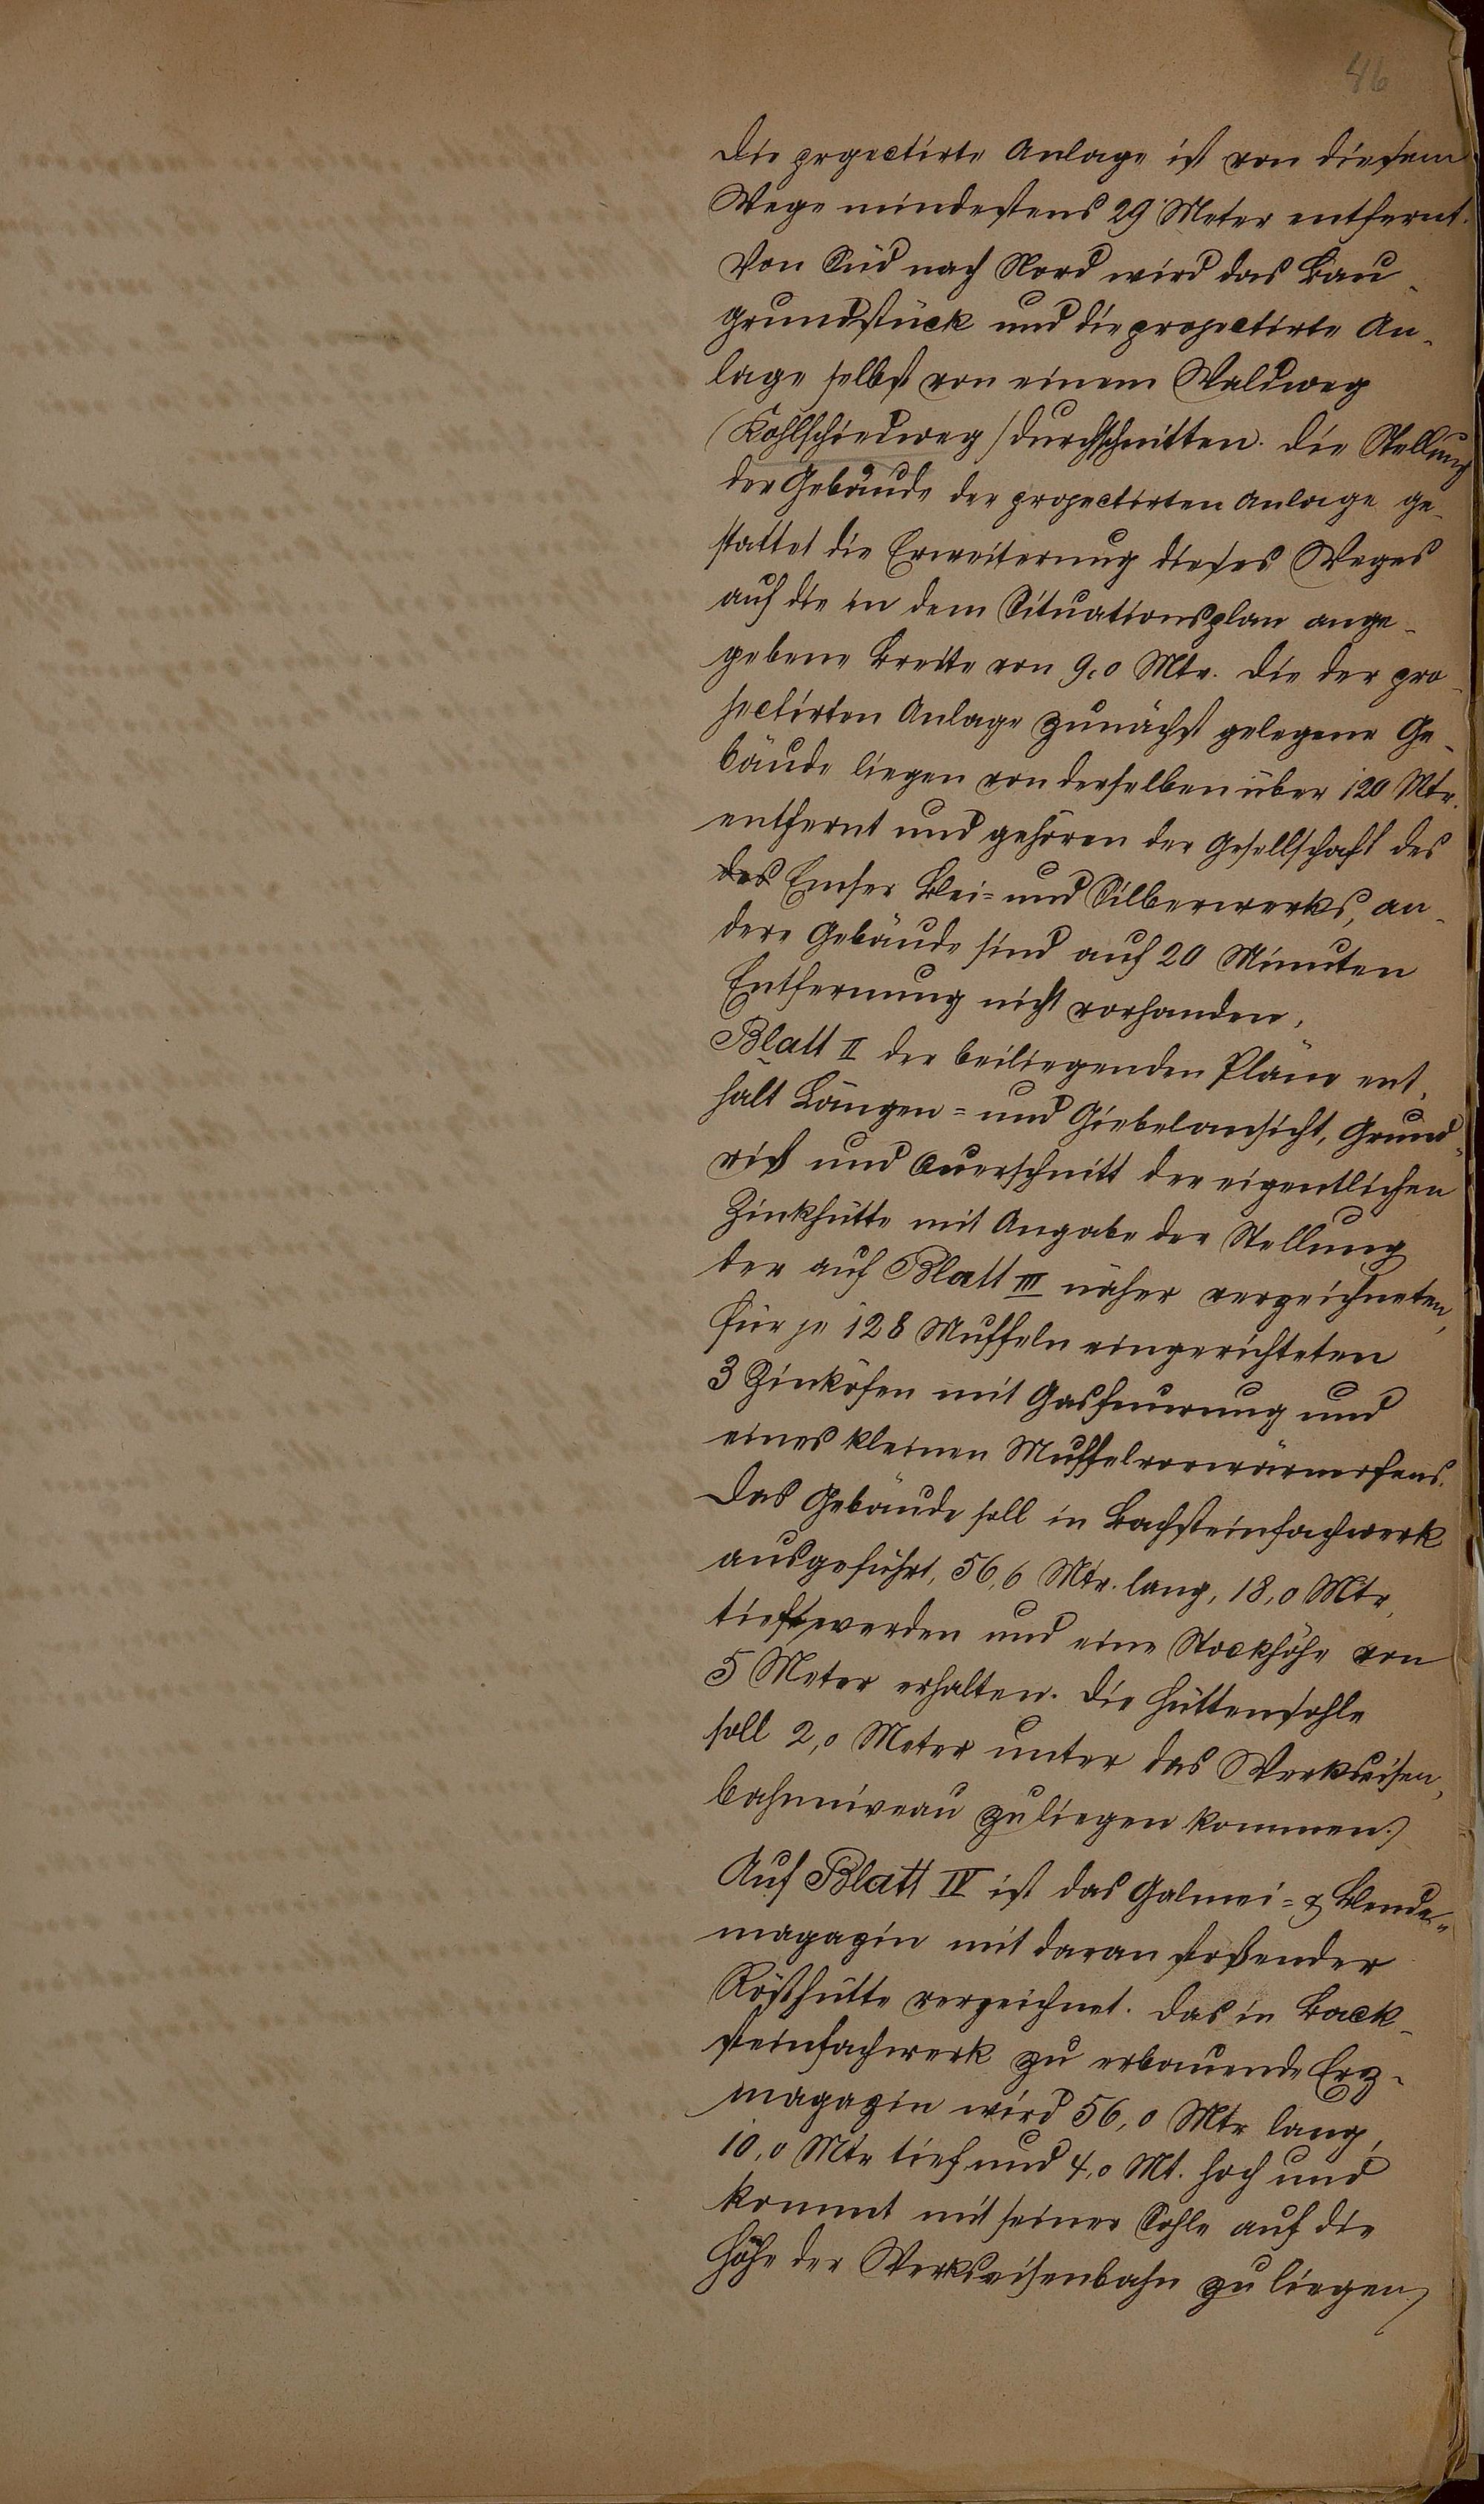 46
die projectirte Anlage ist von diesem
Wege mindestens 29 Meter entfernt.
Von Süd nach Nord wird das Bau-
grundstück und die projectirte An-
lage selbst von einem Waldweg
(Kohlschiedweg) durchschnitten. Die Stellung
der Gebäude der projectirten Anlage ge-
stattet die Erweiterung dieses Weges
auf die in dem Situationsplan ange-
gebene Breite von 9,0 Mtr. Die der pro-
jectirten Anlage zunächst gelegene Ge-
bäude liegen von derselben über 120 Mtr.
entfernt und gehören der Gesellschaft des
des Emser Blei- und Silberwerks, an-
dere Gebäude sind auf 20 Minuten
Entfernung nicht vorhanden.
Blatt II der beiliegenden Pläne ent-
hält Längen- und Giebelansicht, Grund-
riß und Querschnitt der eigentlichen
Zinkhütte mit Angabe der Stellung
der auf Blatt III näher verzeichneten,
für je 128 Muffeln eingerichteten
3 Zinköfen mit Gasfeuerung und
eines kleinen Muffelvorwärmofens.
Das Gebäude soll in Backsteinfachwerk
ausgeführt, 56,6 Mtr. lang, 18,0 Mtr.
tief werden und eine Stockhöhe von
5 Meter erhalten. Die Hüttensohle
soll 2,0 Meter unter das Werkseisen-
bahnniveau zu liegen kommen.
Auf Blatt IV ist das Galmei- & Blende-
magazin mit daran stoßender
Rösthütte verzeichnet. Das in Back-
steinfachwerk zu erbauende Erz-
magazin wird 56,0 Mtr lang,
10,0 Mtr tief und 4,0 Mt. hoch und
kommt mit seiner Sohle auf die
Höhe der Werkseisenbahn zu liegen